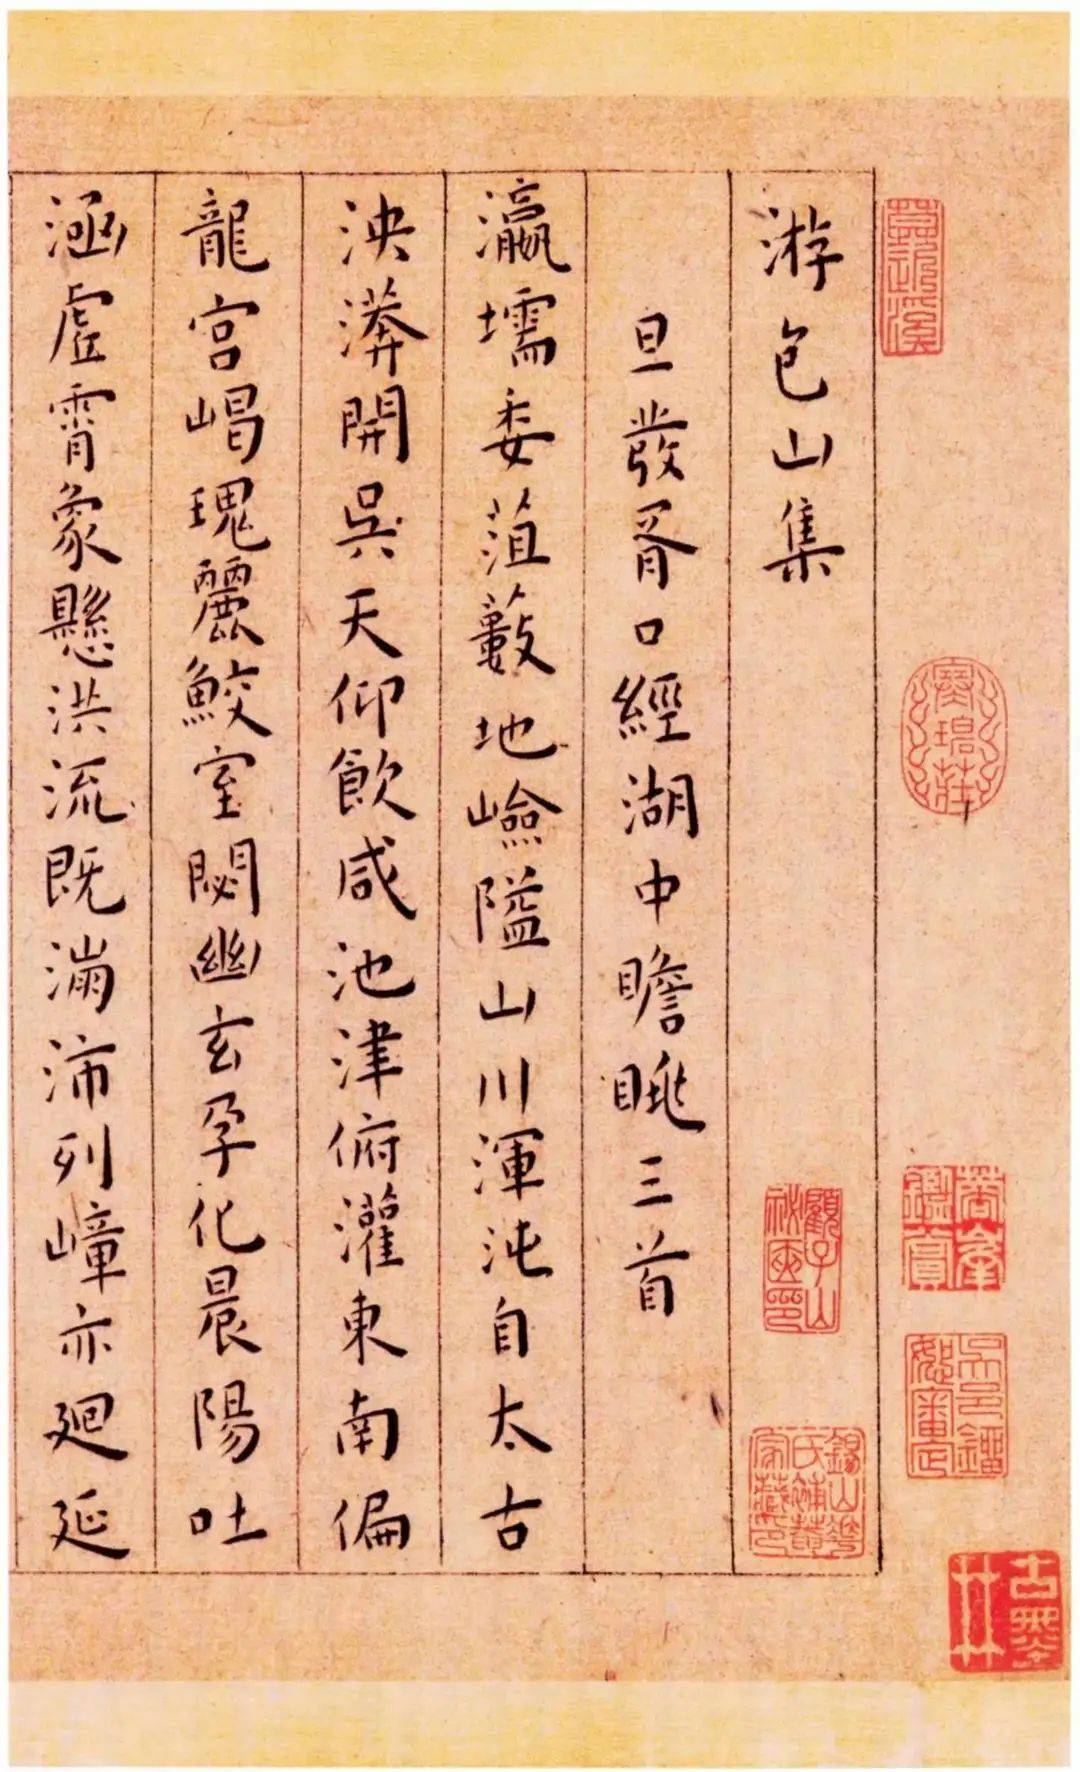 游包山集
旦發胥口經湖中瞻眺三首
瀛壖委菹藪地嶮隘山川渾沌自太古
泱漭開吳天仰飲咸池津俯灌東南偏
龍宮崵瑰麗鮫室閟幽玄孕化晨陽吐
涵虛霄象懸洪流既滿沛列嶂亦廻延
顧子山秘匧印